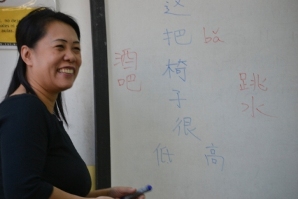 这把椅子很
低 高
酒吧
ba
跳水